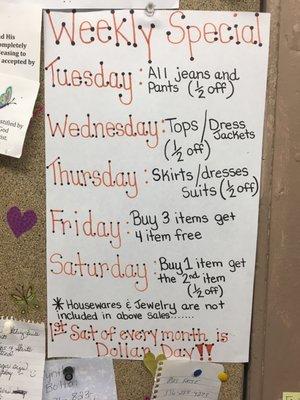 Weekly Special
Tuesday: All jeans and
Pants (1/2 off)
Wednesday: Tops/Dress
Jackets
(1/2 off)
Thursday: Skirts/dresses
Suits (1/2 off)
Friday: Buy 3 items get
4 item free
Saturday: Buy 1 item get
the 2nd item
(1/2 off)
* Housewares & Jewelry are not
included in above sales.......
1st Sat of every month is
Dollar Day!!
and His
completely
leasing to
accepted by
by
God